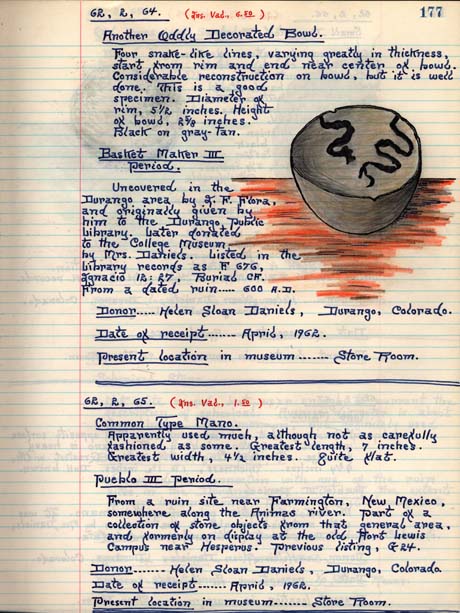 62, 2, 64. (Ins. Val., 6.50)
177
Another Oddly Decorated Bowl.
Four snake-like lines, varying greatly in thickness,
start from rim and end near center of bowl.
Considerable reconstruction on bowl, but it is well
done. This is a good
specimen. Diameter of
rim, 5 1/2 inches. Height
of bowl, 2 7/8 inches.
Black on gray-tan.
Basket Maker III
Period.
Uncovered in the
Durango area by I. F. Flora,
and originally given by
him to the Durango Public
Library. Later donated
to the College Museum
by Mrs. Daniels. Listed in the
library records as F 676,
Ignacio 12:27, Burial CF.
From a dated ruin.... 600 A.D.
Donor.... Helen Sloan Daniels, Durango, Colorado.
Date of receipt....... April, 1962.
Present location in museum....... Store Room.
62, 2, 65. (Ins. Val., 1.50)
Common Type Mano.
Apparently used much, although not as carefully
fashioned as some. Greatest length, 7 inches.
Greatest width, 4 1/2 inches. Quite flat.
Pueblo III Period.
From a ruin site near Farmington, New Mexico,
somewhere along the Animas river. Part of a
collection of stone objects from that general area,
and formerly on display at the old Fort Lewis
Campus near Hesperus. Previous listing, G 24.
Donor....... Helen Sloan Daniels, Durango, Colorado
Date of receipt...... April, 1962.
Present location in museum...... Store Room.